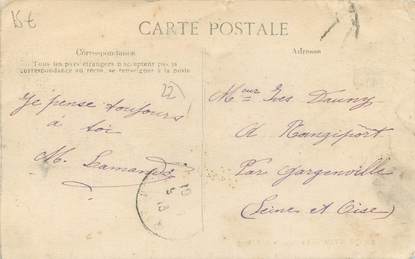 15€
CARTE POSTALE
Correspondance
Tous les pays étrangers n'acceptent pas la
correspondance au recto, se renseigner à la poste
Adresse
22
Je pense toujours
à toi
M.
Mr Yves
A Rangiport
Par Gargenville
(Seine et Oise)